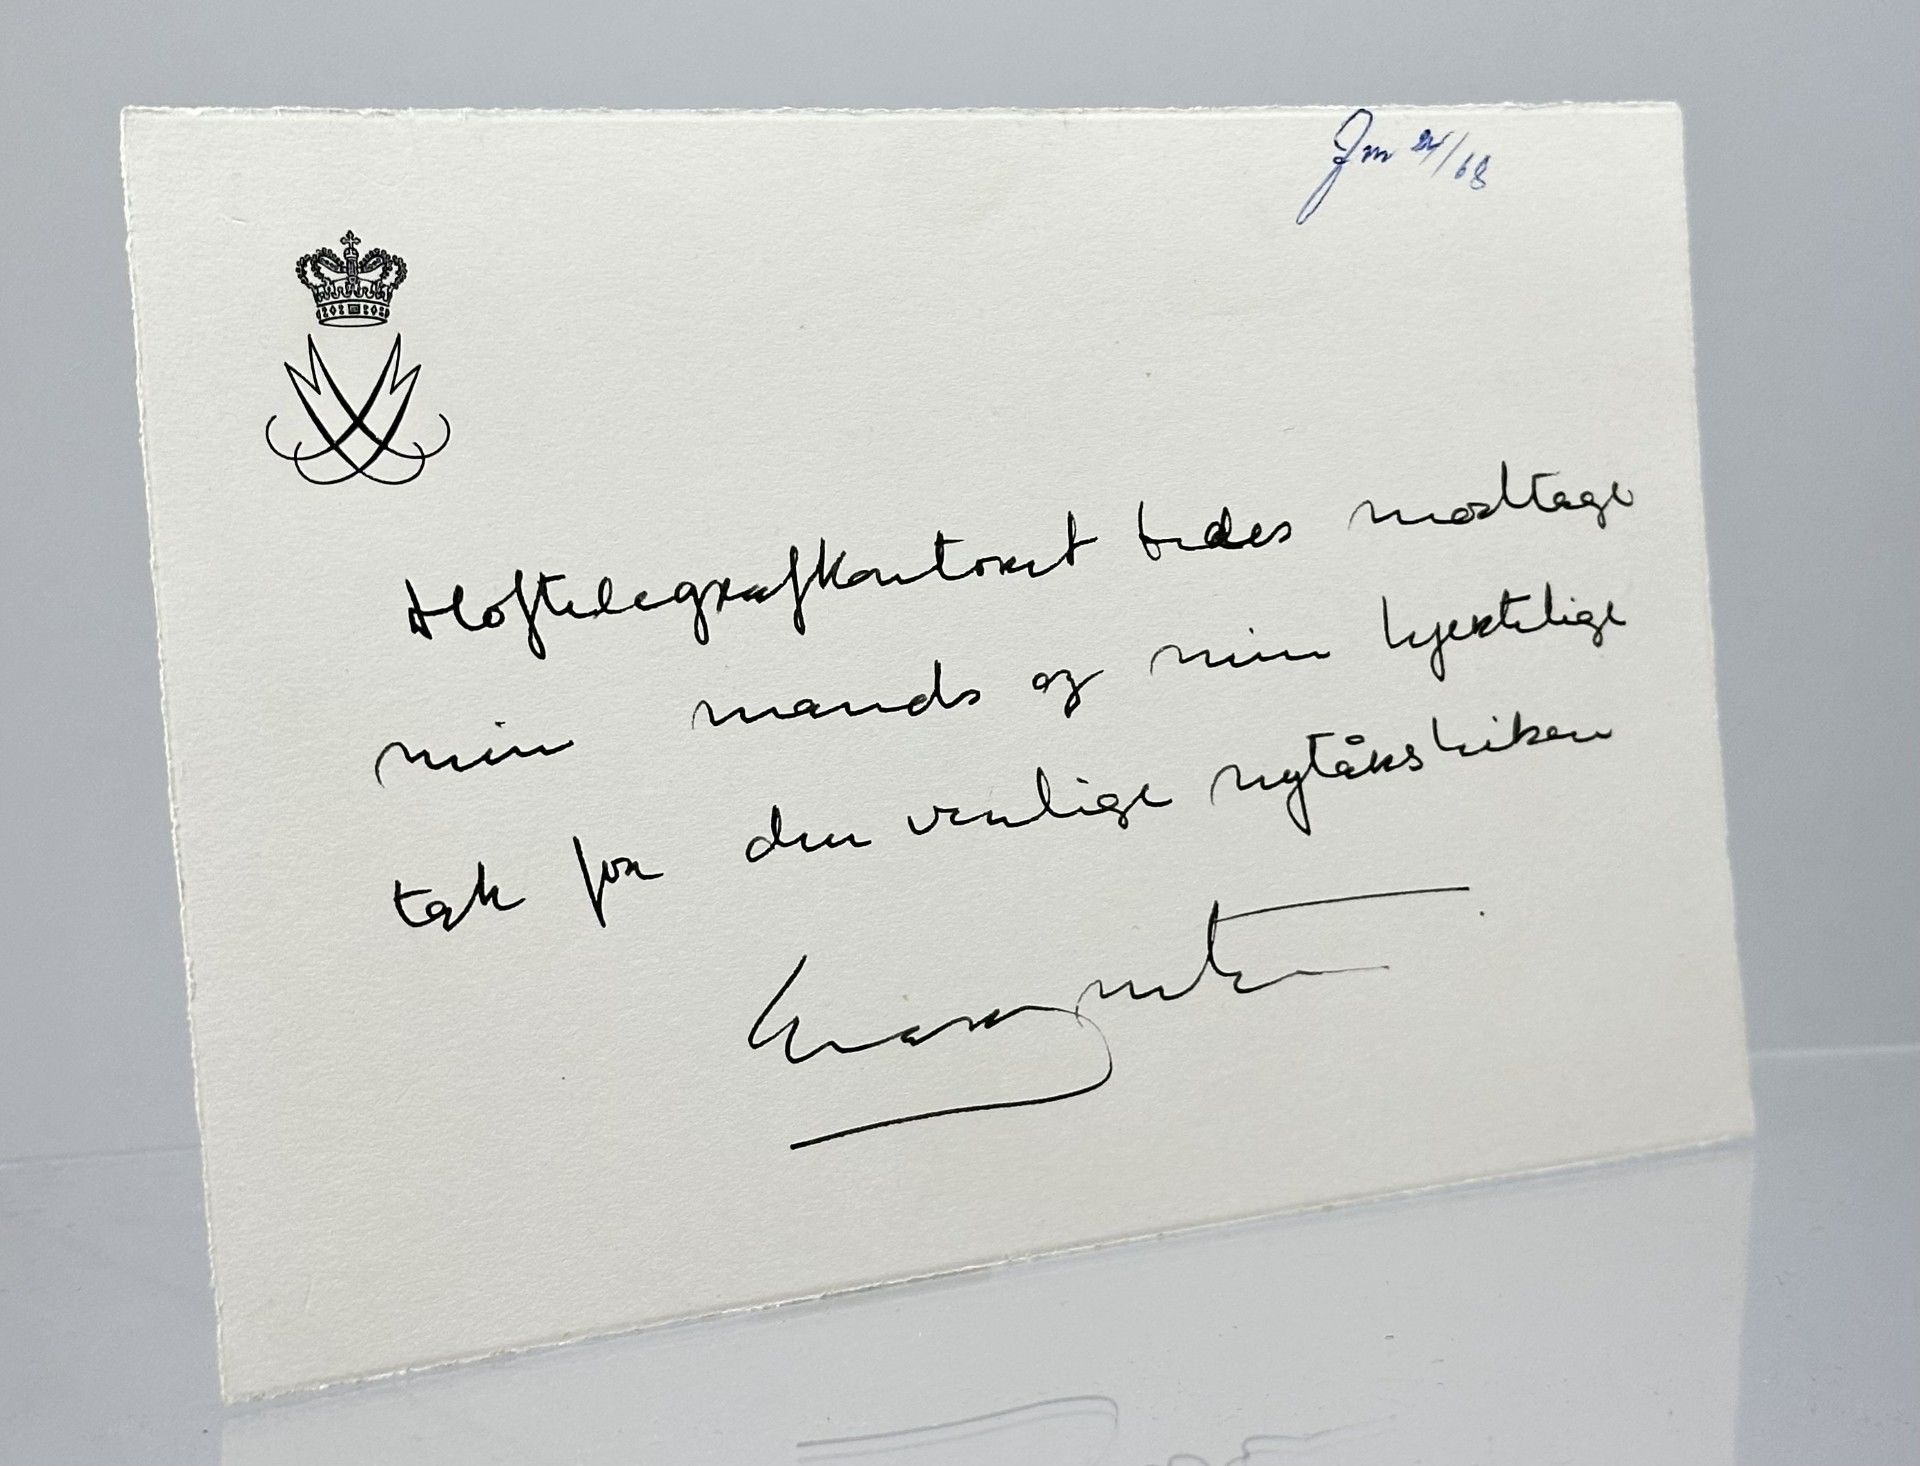 Jm 24/68
Hoftelegrafkontoret bedes modtage
min mands og min hjertelige
tak for den venlige nytårshilsen
Margrethe